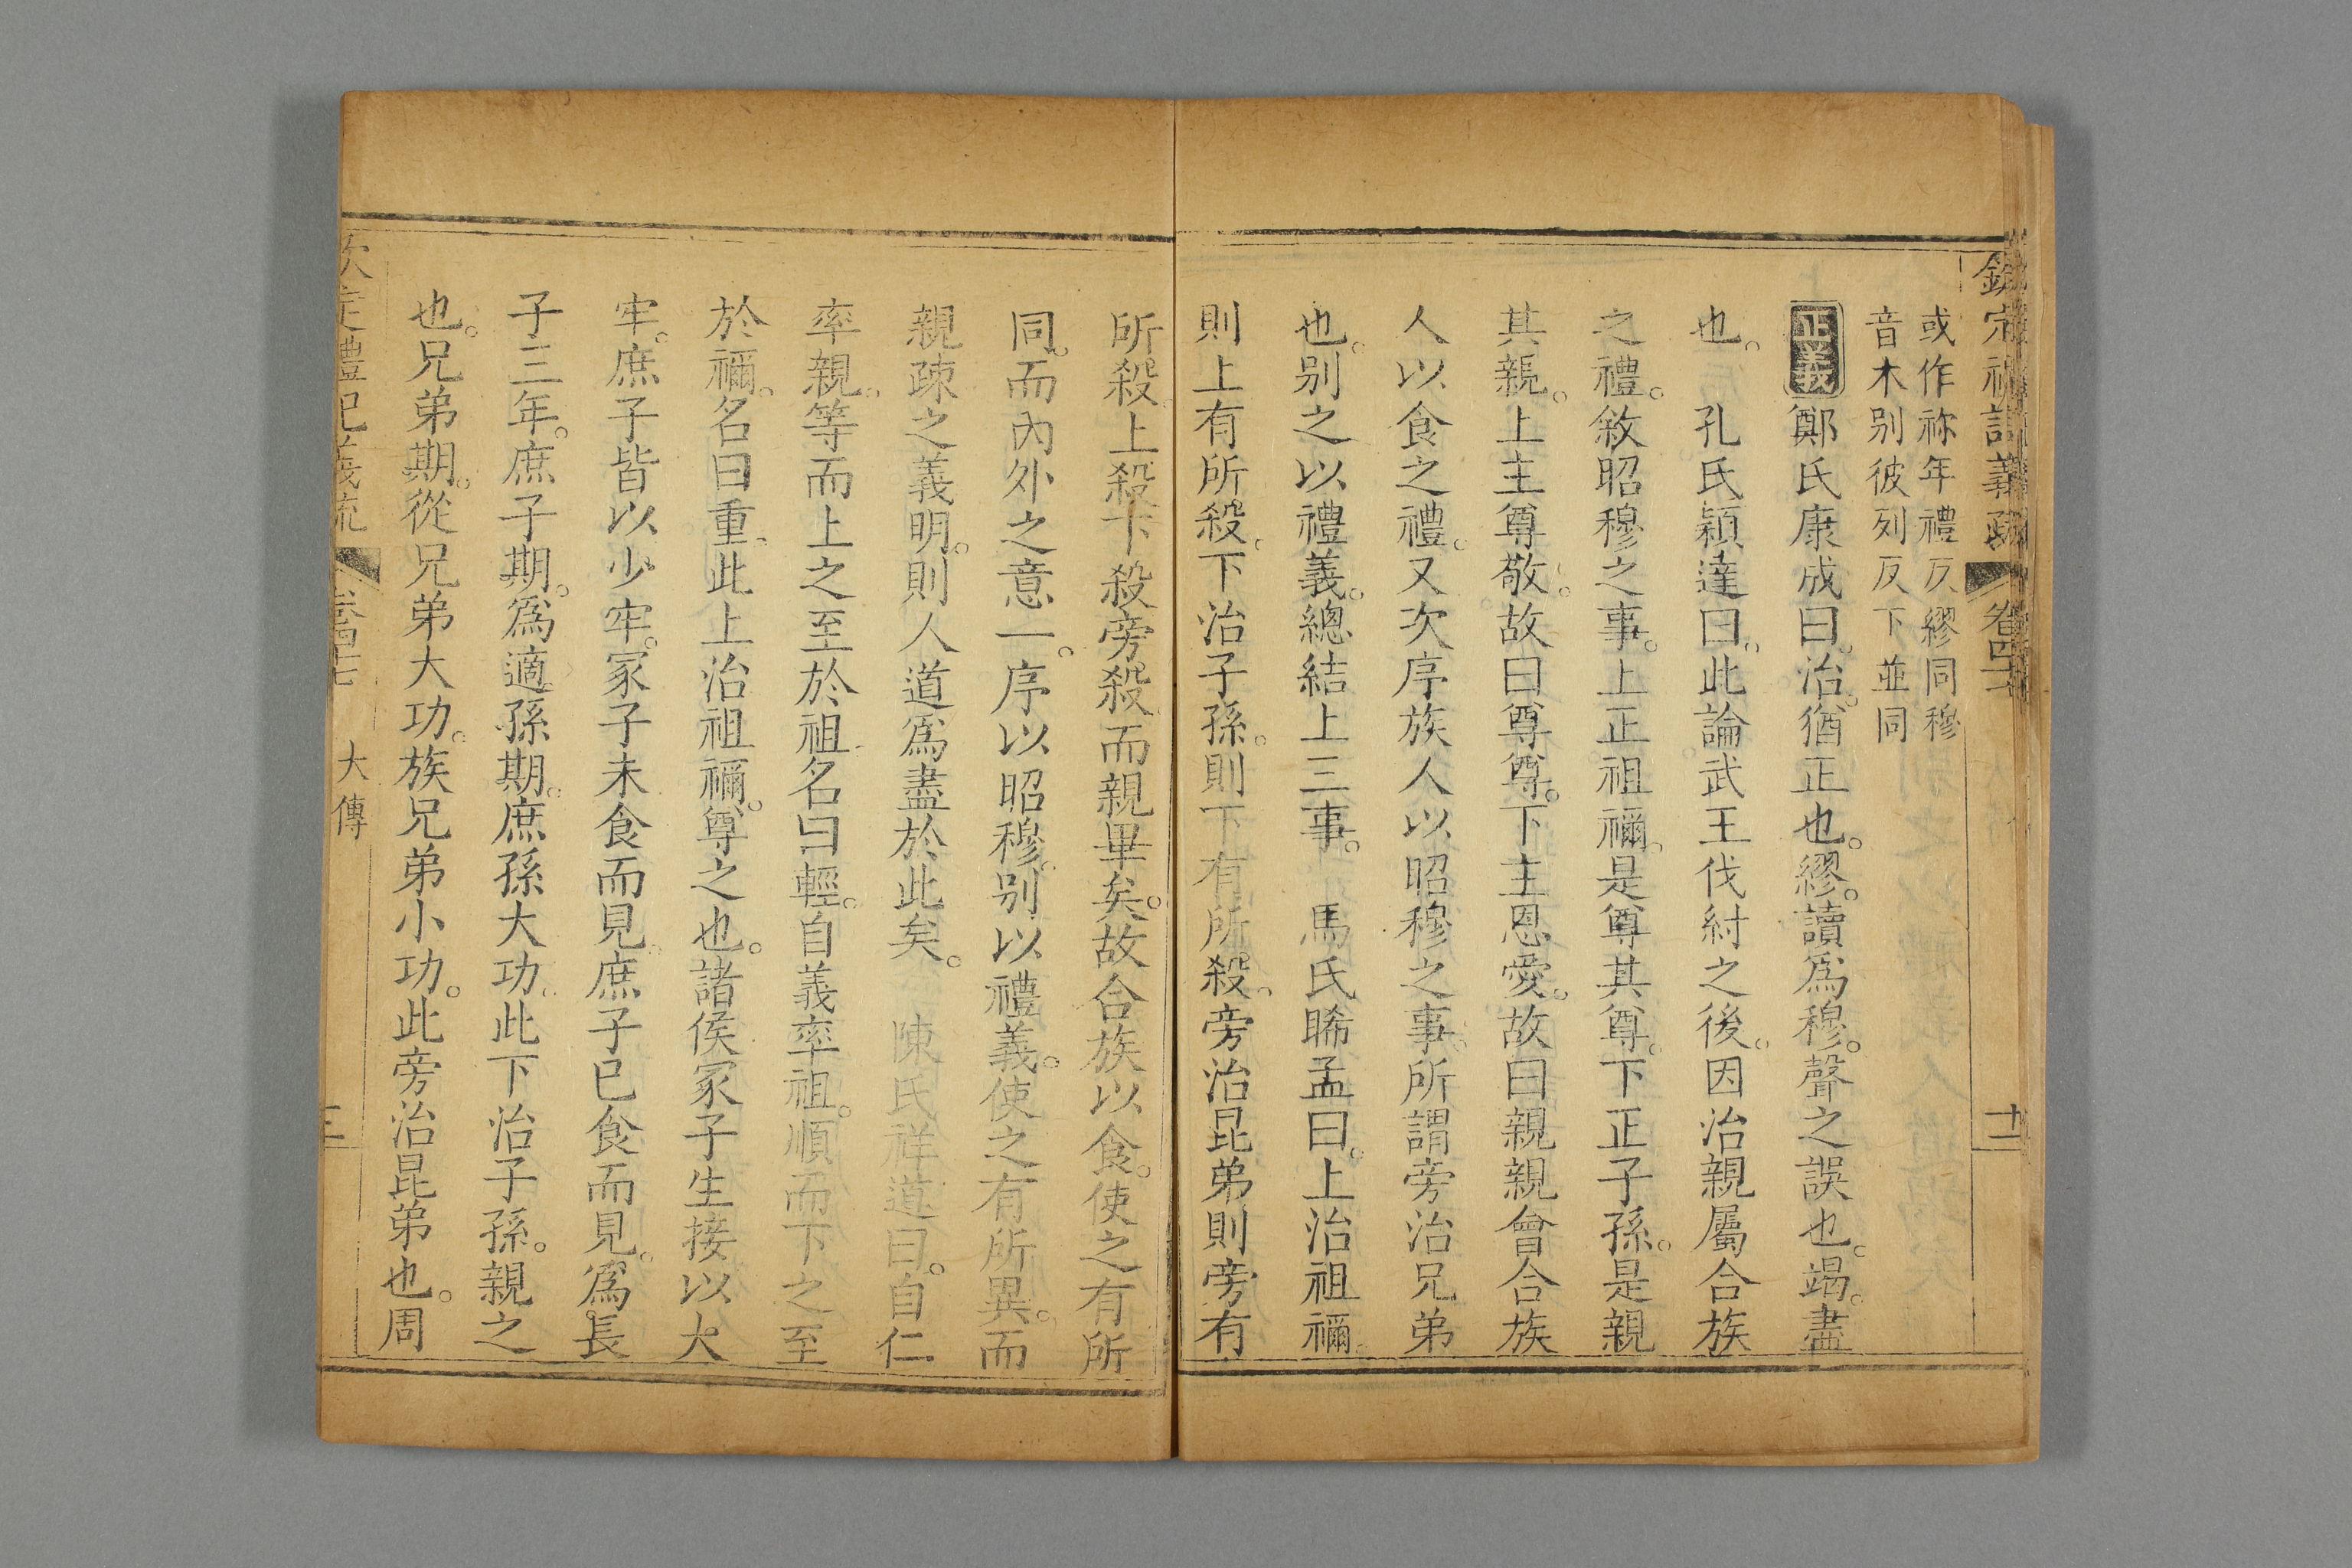 欽定禮記義疏 卷四十七 十二
或作祢年禮反繆同穆
音木别彼列反下並同
正義 鄭氏康成曰。治。猶正也。繆。讀爲穆。聲之誤也。竭。盡
也。 孔氏穎達曰。此論武王伐紂之後。因治親屬合族
之禮。敘昭穆之事。上正祖禰。是尊其尊。下正子孫。是親
其親。上主尊敬。故曰尊尊。下主恩愛。故曰親親會合族
人以食之禮。又次序族人以昭穆之事。所謂旁治兄弟
也。别之以禮義。總結上三事。 馬氏晞孟曰。上治祖禰。
則上有所殺。下治子孫。則下有所殺。旁治昆弟則旁有
所殺。上殺下殺旁殺而親畢矣。故合族以食。使之有所
同。而內外之意一。序以昭穆。别以禮義。使之有所異。而
親疎之義明。則人道爲盡於此矣。 陳氏祥道曰。自仁
率親。等而上之至於祖名曰輕。自義率祖。順而下之至
於禰。名曰重。此上治祖禰。尊之也。諸侯冢子生接以大
牢。庶子皆以少牢。冢子未食而見。庶子已食而見。爲長
子三年。庶子期。爲適孫期。庶孫大功。此下治子孫。親之
也。兄弟期。從兄弟大功。族兄弟小功。此旁治昆弟也。周
欽定禮記義疏 卷四十七 大傳